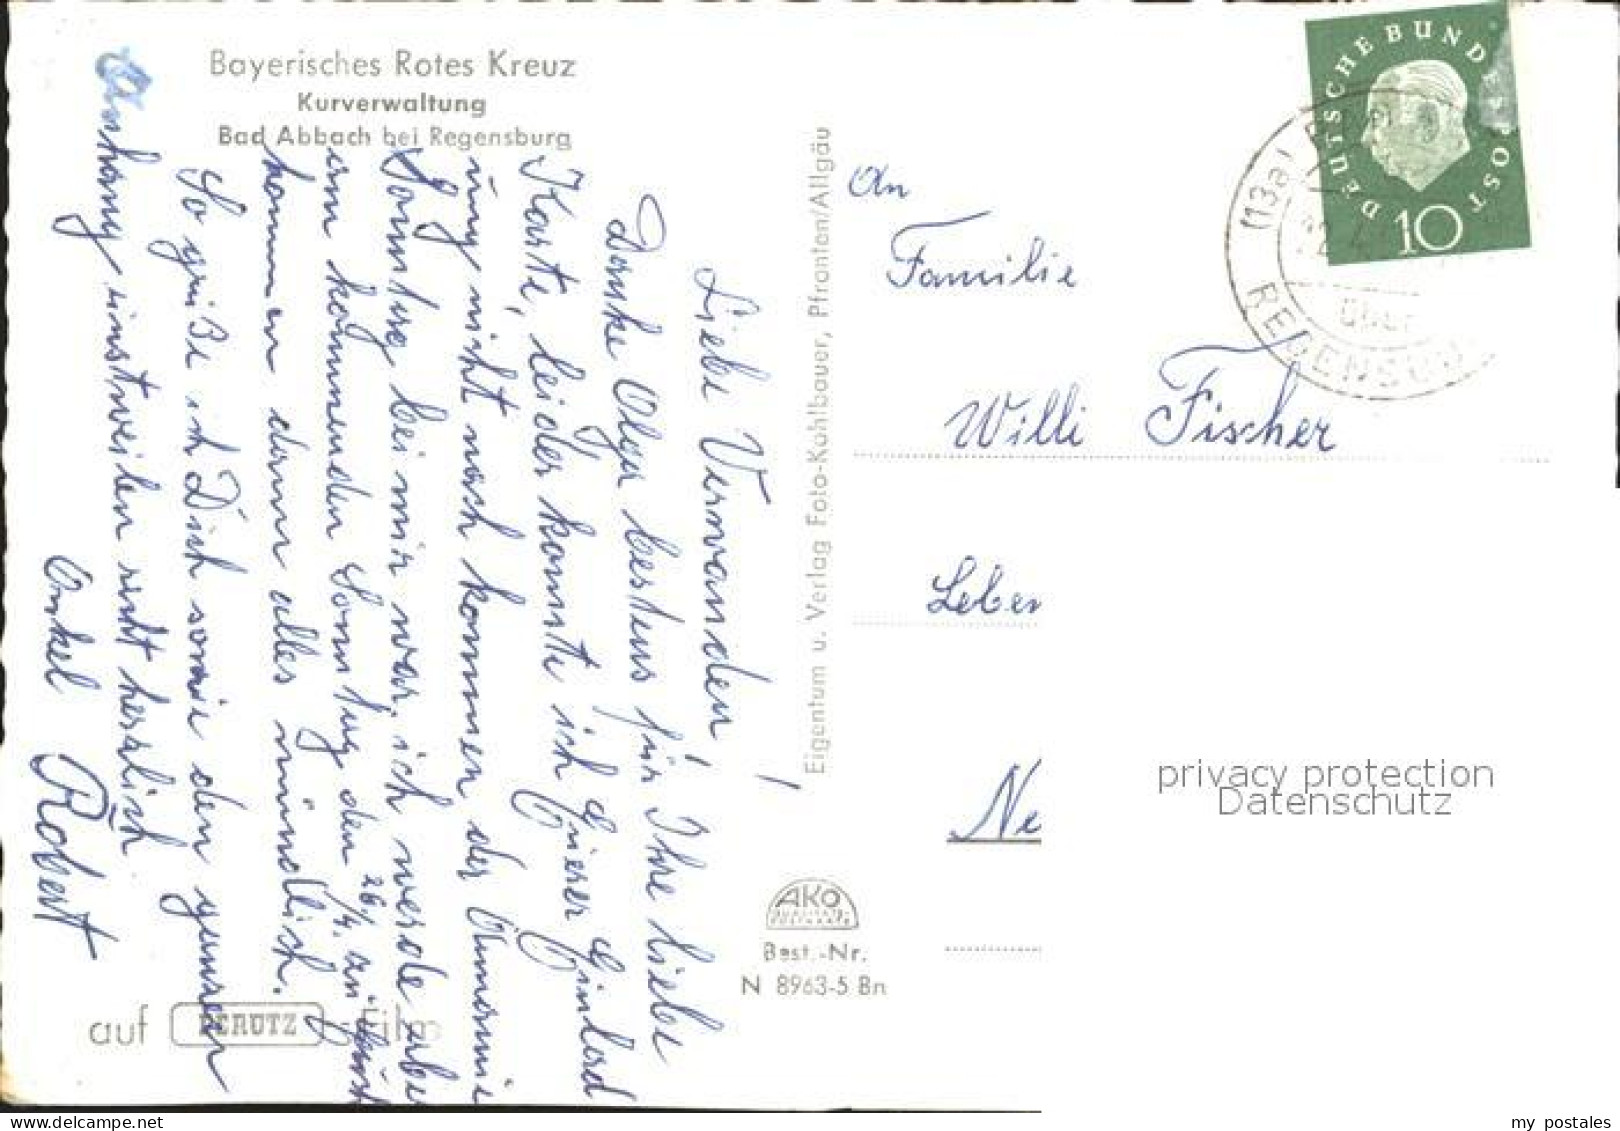 Bayerisches Rotes Kreuz
Kurverwaltung
Bad Abbach bei Regensburg
Liebe Verwanden!
Danke Olga bestens für Ihre liebe
Karte, leider konnte ich dieser
nicht nach kommen da
Sonntag bei mir war, ich werde aber
am kommenden Sonntag den 26/4. zu
kommen dann alles mündlich.
So grüße ich Dich sowie den ganzen
Anhang einstweilen recht herzlich
Onkel Robert
auf PERUTZ - Film
Eigentum u. Verlag Foto-Kohlbauer, Pfronten/Allgäu
AKO
QUALITÄTS-
POSTKARTE
Best.-Nr.
N 8963-5 Bn
DEUTSCHE BUNDESPOST
10
(13a)
REGENSBU
An
Familie
Willi Fischer
Leben
Ne
privacy protection
Datenschutz
my postales